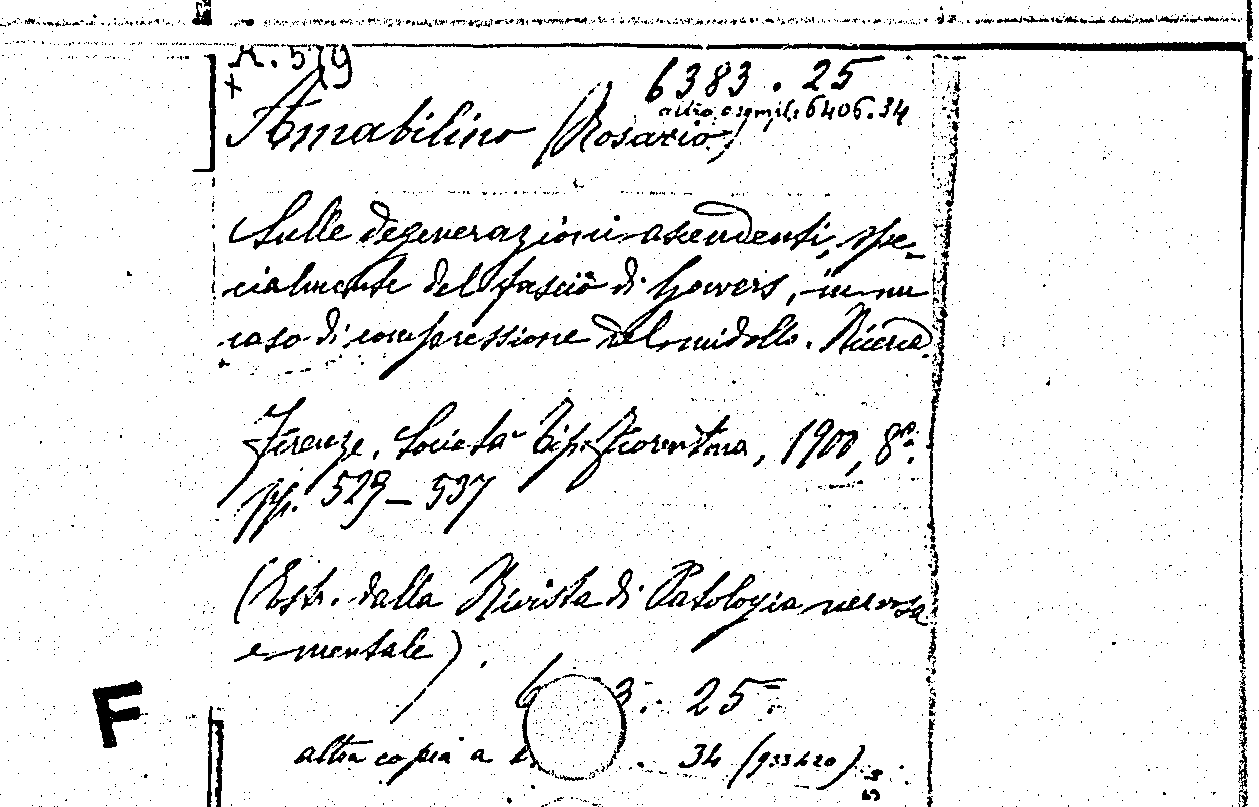 R. 579
6383.25
+
altro esempl: 6406.34
Amabilino (Rosario)
Sulle degenerazioni ascendenti, spe-
cialmente del fascio di Gowers, in un
caso di compressione del midollo. Ricerca
Firenze, Società Tip. Fiorentina, 1900, 8º.
pp. 529-537
(Estr. dalla Rivista di Patologia nervosa
e mentale).
6 3. 25.
altra copia a . 34 (933420)
F